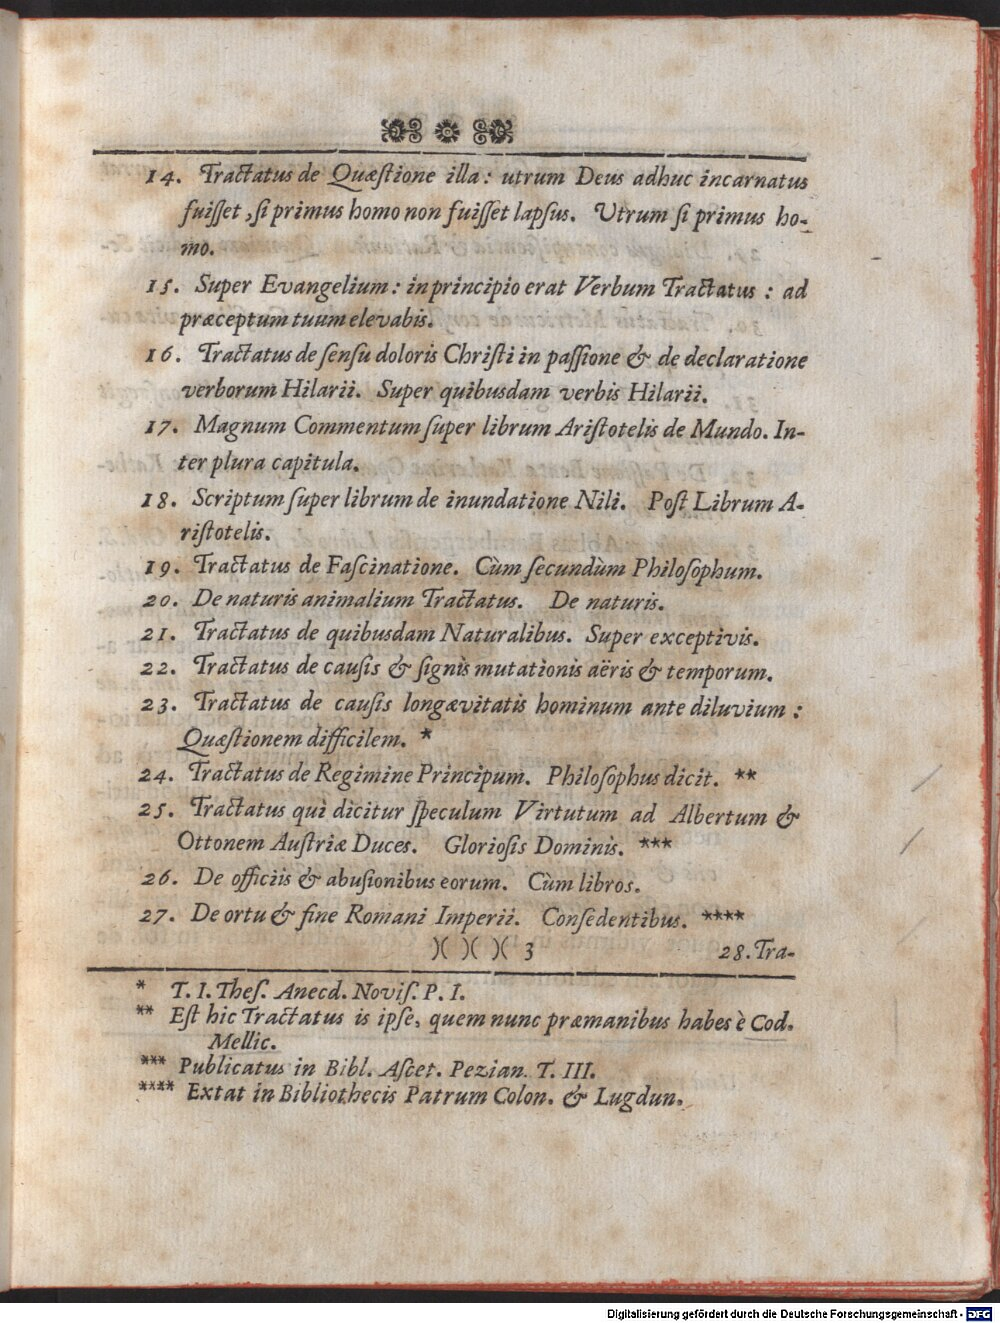 14. Tractatus de Quæſtione illa: utrum Deus adhuc incarnatus
fuiſſet, ſi primus homo non fuiſſet lapſus. Utrum ſi primus ho-
mo.
15. Super Evangelium: in principio erat Verbum Tractatus: ad
præceptum tuum elevabis.
16. Tractatus de ſenſu doloris Chriſti in paſſione & de declaratione
verborum Hilarii. Super quibusdam verbis Hilarii.
17. Magnum Commentum ſuper librum Ariſtotelis de Mundo. In-
ter plura capitula.
18. Scriptum ſuper librum de inundatione Nili. Poſt Librum A-
riſtotelis.
19. Tractatus de Faſcinatione. Cùm ſecundùm Philoſophum.
20. De naturis animalium Tractatus. De naturis.
21. Tractatus de quibusdam Naturalibus. Super exceptivis.
22. Tractatus de cauſis & ſignis mutationis aëris & temporum.
23. Tractatus de cauſis longævitatis hominum ante diluvium:
Quæſtionem difficilem. *
24. Tractatus de Regimine Principum. Philoſophus dicit. **
25. Tractatus qui dicitur ſpeculum Virtutum ad Albertum &
Ottonem Auſtriæ Duces. Glorioſis Dominis. ***
26. De officiis & abuſionibus eorum. Cùm libros.
27. De ortu & fine Romani Imperii. Conſedentibus. ****
)( )( )( 3 28. Tra-
* T. I. Theſ. Anecd. Noviſ. P. I.
** Eſt hic Tractatus is ipſe, quem nunc præmanibus habes è Cod.
Mellic.
*** Publicatus in Bibl. Aſcet. Pezian. T. III.
**** Extat in Bibliothecis Patrum Colon. & Lugdun.
Digitalisierung gefördert durch die Deutsche Forschungsgemeinschaft - DFG